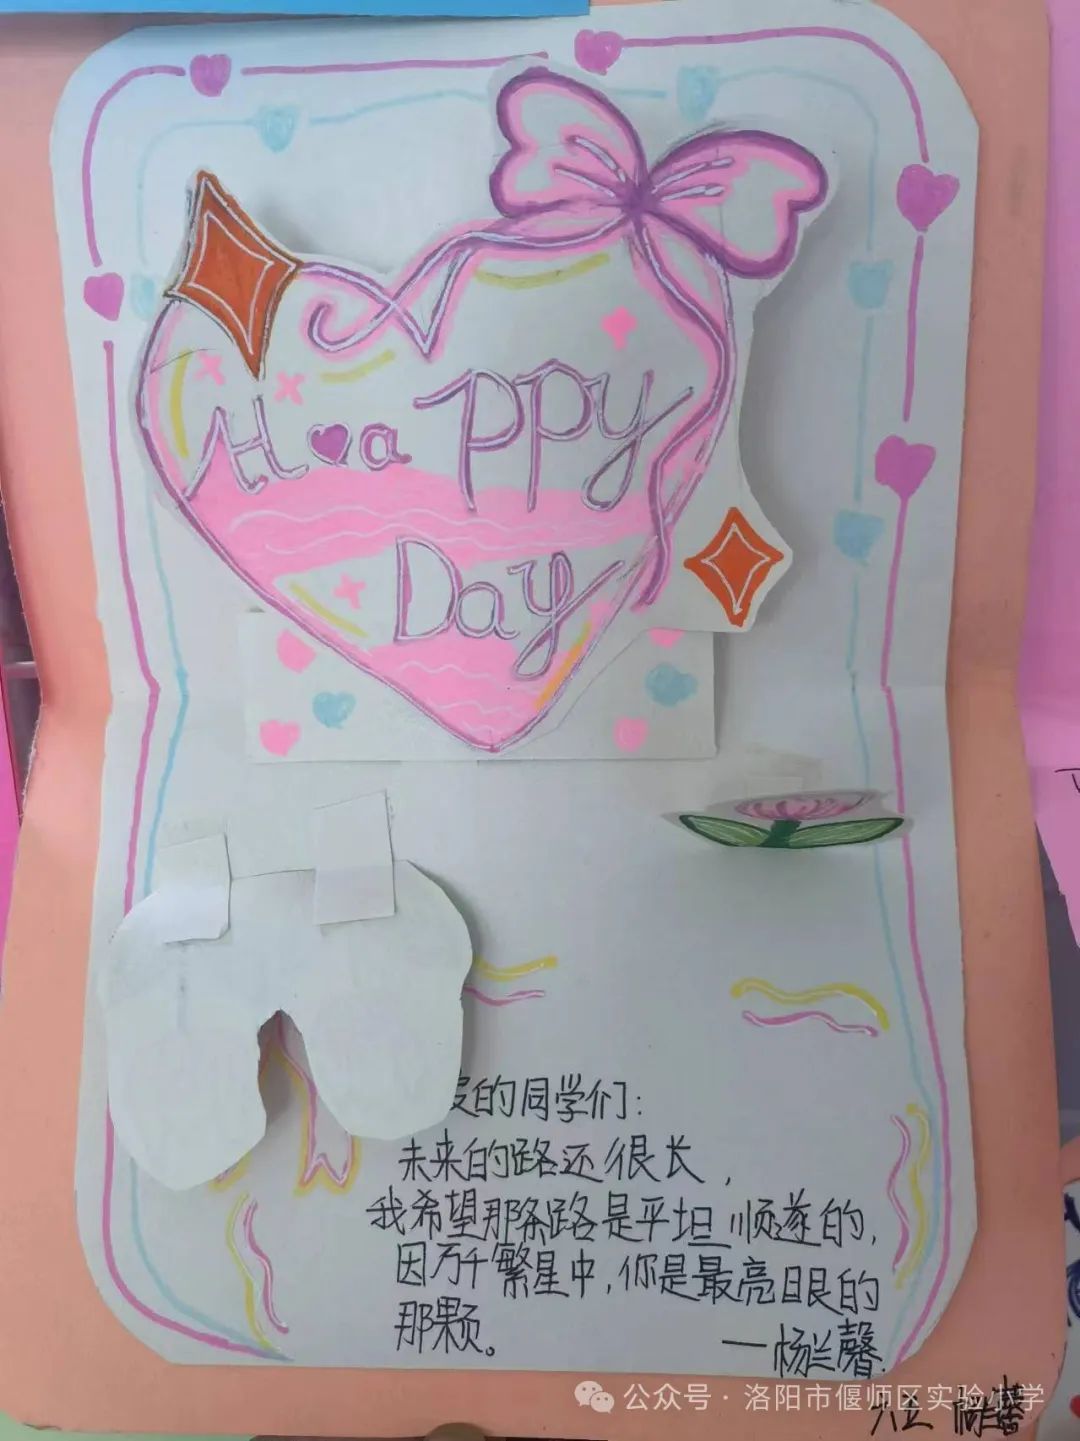 Happy
Day
的同学们:
未来的路还很长,
我希望那条路是平坦顺遂的,
因万千繁星中,你是最亮眼的
那颗。
—杨兰馨.
公众号·洛阳市偃师区实验小学
六五